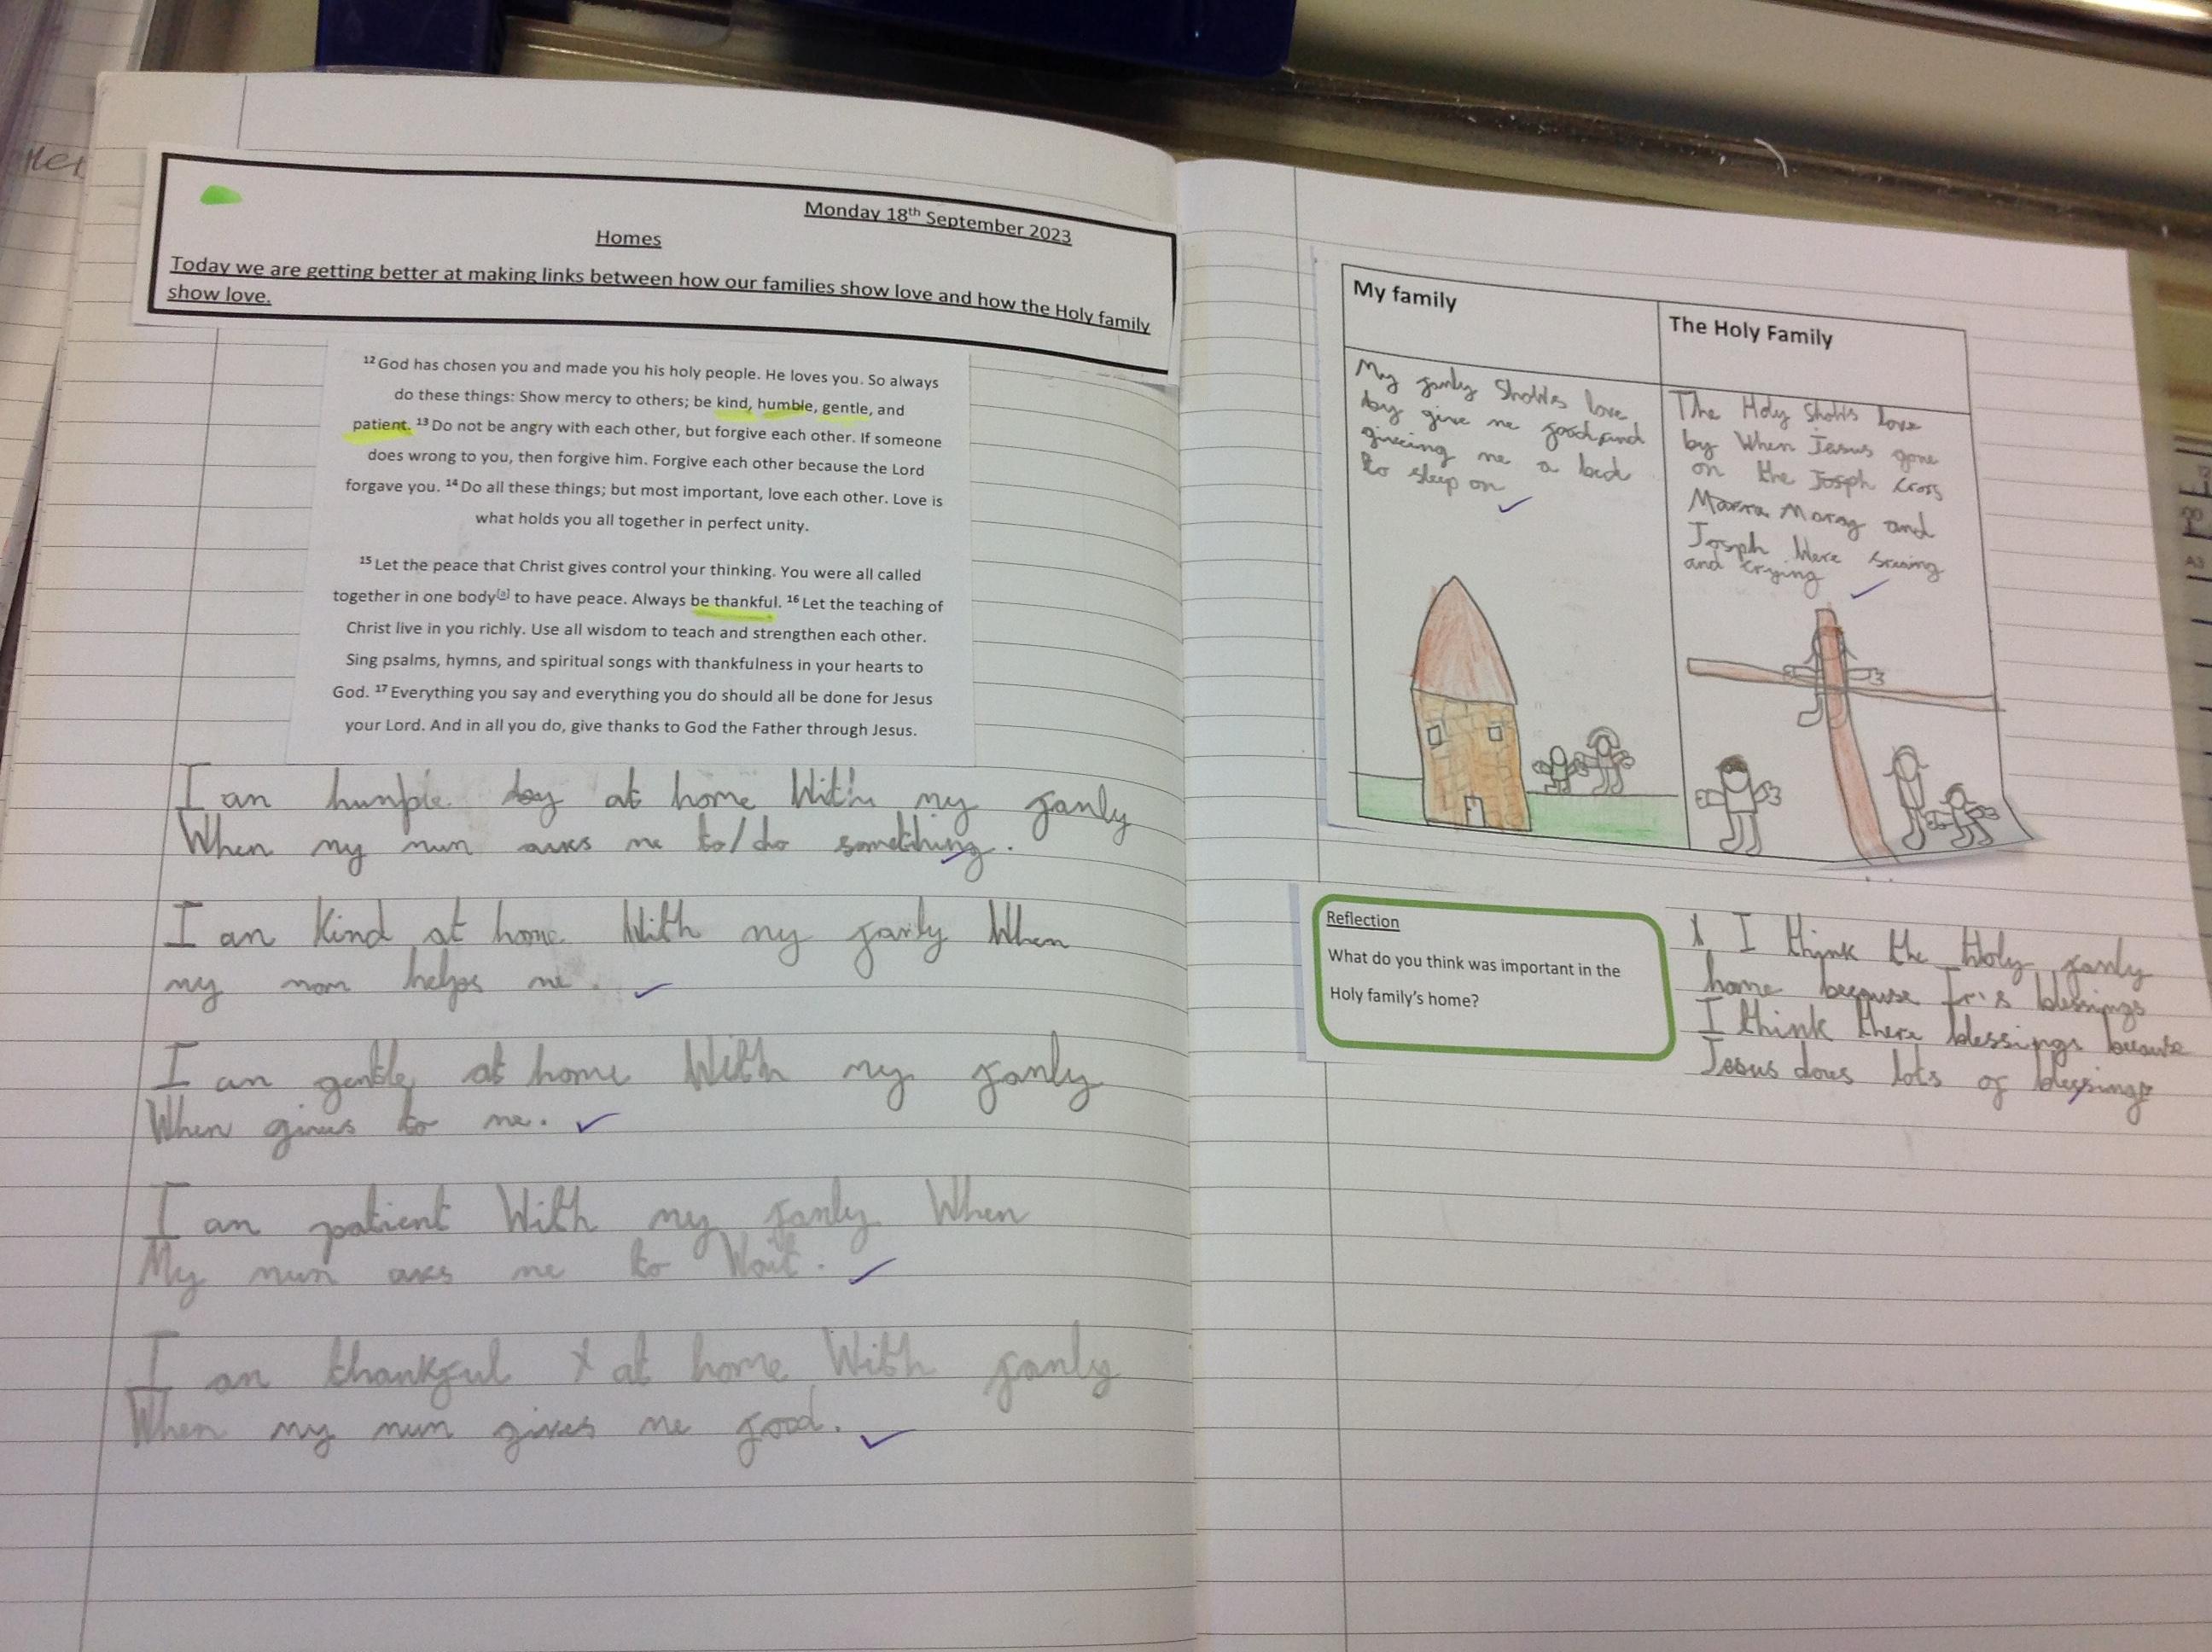 Monday 18th September 2023
Homes
Today we are getting better at making links between how our families show love and how the Holy family
show love.
12 God has chosen you and made you his holy people. He loves you. So always
do these things: Show mercy to others; be kind, humble, gentle, and
patient. 13 Do not be angry with each other, but forgive each other. If someone
does wrong to you, then forgive him. Forgive each other because the Lord
forgave you. 14 Do all these things; but most important, love each other. Love is
what holds you all together in perfect unity.
15 Let the peace that Christ gives control your thinking. You were all called
together in one body[a] to have peace. Always be thankful. 16 Let the teaching of
Christ live in you richly. Use all wisdom to teach and strengthen each other.
Sing psalms, hymns, and spiritual songs with thankfulness in your hearts to
God. 17 Everything you say and everything you do should all be done for Jesus
your Lord. And in all you do, give thanks to God the Father through Jesus.
I am humple at home With my famly
When my mum to/do something.
I am Kind at home With my famly When
my mom helps me.
I am gentle at home With my famly
When gives to me.
I am patient With my famly When
My mum me to Wait.
I am thankful at home With famly
When my mum gives me food.
My family
My famly love
by give me food and
me a bed
to sleep on
The Holy Family
The Holy love
by When Jesus gone
on the Josph cross
and
Josph Were
and crying
Reflection
What do you think was important in the
Holy family's home?
I think the Holy famly
home because blessings
I think there blessings because
Jesus does lots of blessings